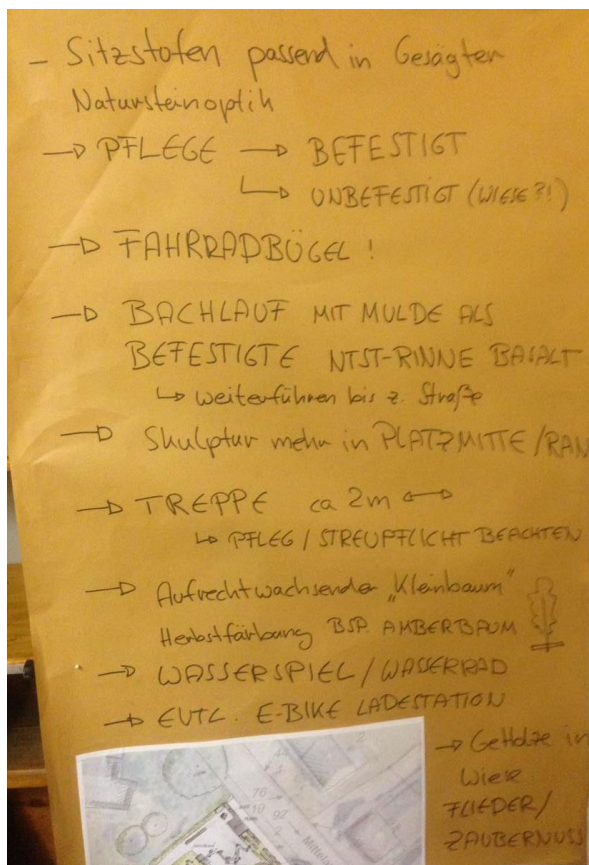 - Sitzstufen passend in Gesägter
Natursteinoptik
→ PFLEGE → BEFESTIGT
↳ UNBEFESTIGT (WIESE?!)
→ FAHRRADBÜGEL !
→ BACHLAUF MIT MULDE ALS
BEFESTIGTE NTST-RINNE BASALT
↳ weiterführen bis z. Straße
→ Skulptur mehr in PLATZMITTE / RAN
→ TREPPE ca 2m ↔
↳ PFLEG / STREUPFLICHT BEACHTEN
→ Aufrechtwachsender „Kleinbaum"
Herbstfärbung BSP. AMBERBAUM
→ WASSERSPIEL / WASSERRAD
→ EVTL. E-BIKE LADESTATION
→ Gehölze in
Wiese
FLIEDER /
ZAUBERNUSS